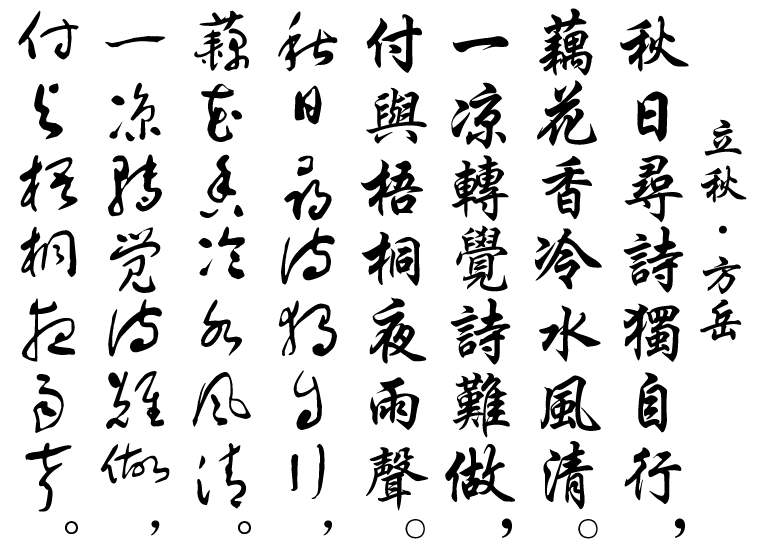 立秋·方岳
秋日尋詩獨自行，
藕花香冷水風清。
一凉轉覺詩難做，
付與梧桐夜雨聲。
秋日尋诗独自行，
藕花香冷水风清。
一凉转觉诗难做，
付与梧桐夜雨声。